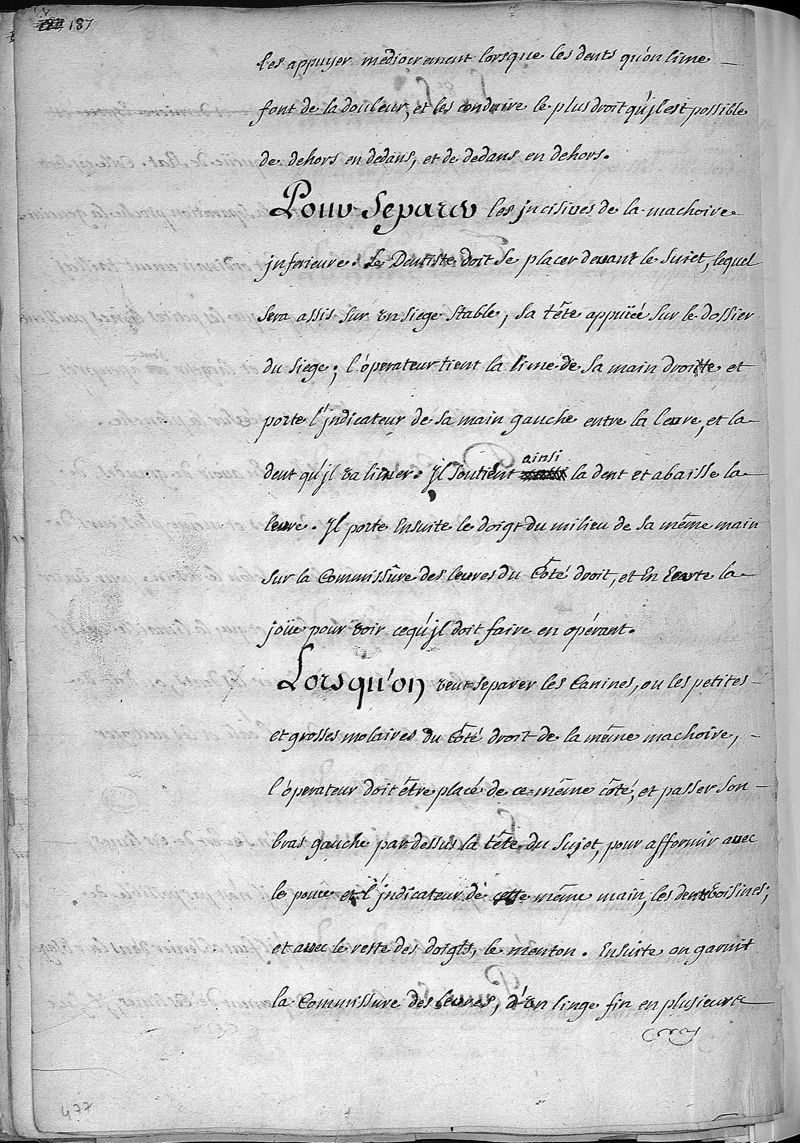 187
les appuyer mediocrement lorsque les dents qu'on lime
font de la douleur, et les conduire le plus droit qu'jl est possible
de dehors en dedans, et de dedans en dehors.
Pour Separer les jncisives de la machoire
jnferieure. Le Dentiste doit Se placer devant le Sujet, lequel
Sera assis Sur un Siege Stable, Sa tête appuïée Sur le dossier
du Siege; l'operateur tient la lime de Sa main droitte et
porte l'jndicateur de Sa main gauche entre la levre, et la
dent qu'jl va limer. Jl Soutient ainsi la dent et abaisse la
levre. Jl porte Ensuite le doigt du milieu de Sa même main
Sur la Commissûre des levres du Côté droit, et En Ecarte la
joüe pour voir cequ'jl doit faire en opérant.
Lorsqu'on veut Separer les Canines, ou les petites
et grosses molaires du Côté droit de la même machoire,
l'operateur doit être placé de ce même côté, et passer Son
bras gauche par dessus la tête du Sujet, pour affermir avec
le pouce et l'jndicateur de cette même main, les dents voisines;
et avec le reste des doigts, le menton. Ensuite on garnit
la Commissure des levres, d'un linge fin en plusieurs
477